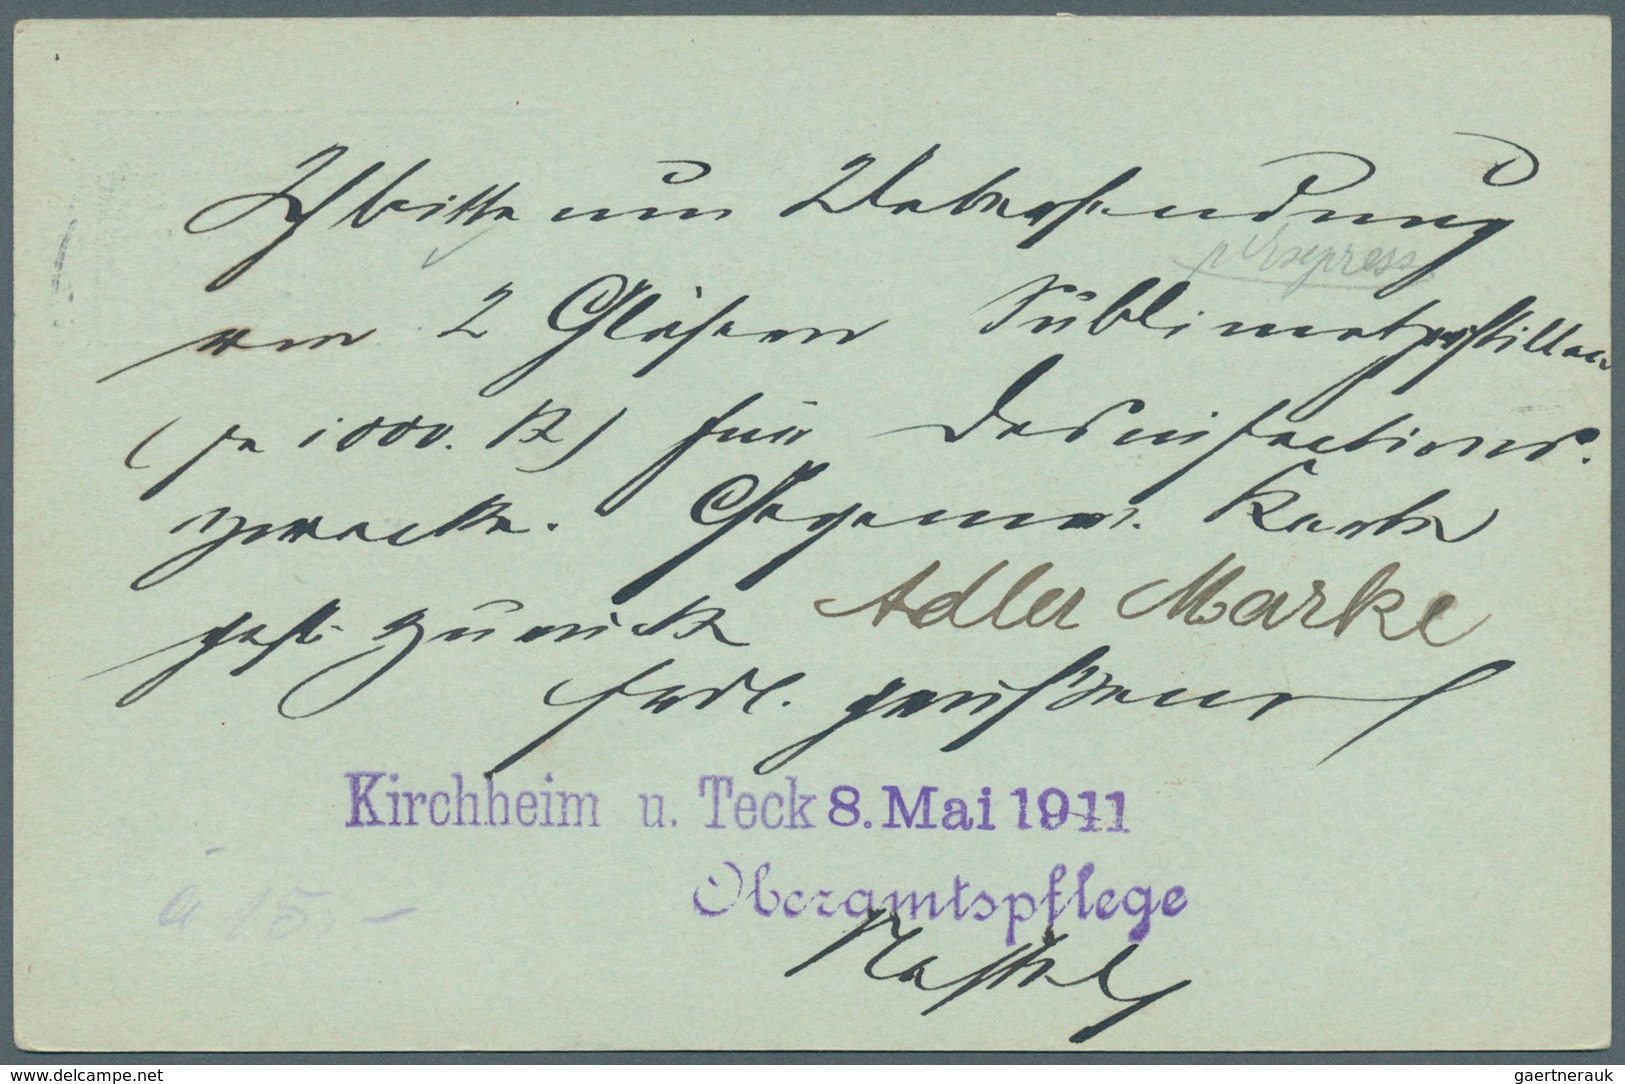 Ich bitte um Uebersendung
von 2 Gläsern Sublimatpastillen
(je 1000. St) für Desinfections-
zwecke. Gegenw. Karte
gefl. zurück Adler Marke
frdl. grüssend
Kirchheim u. Teck 8. Mai 1911
Oberamtspflege
à 15.-
www.delcampe.net
gaertnerauk